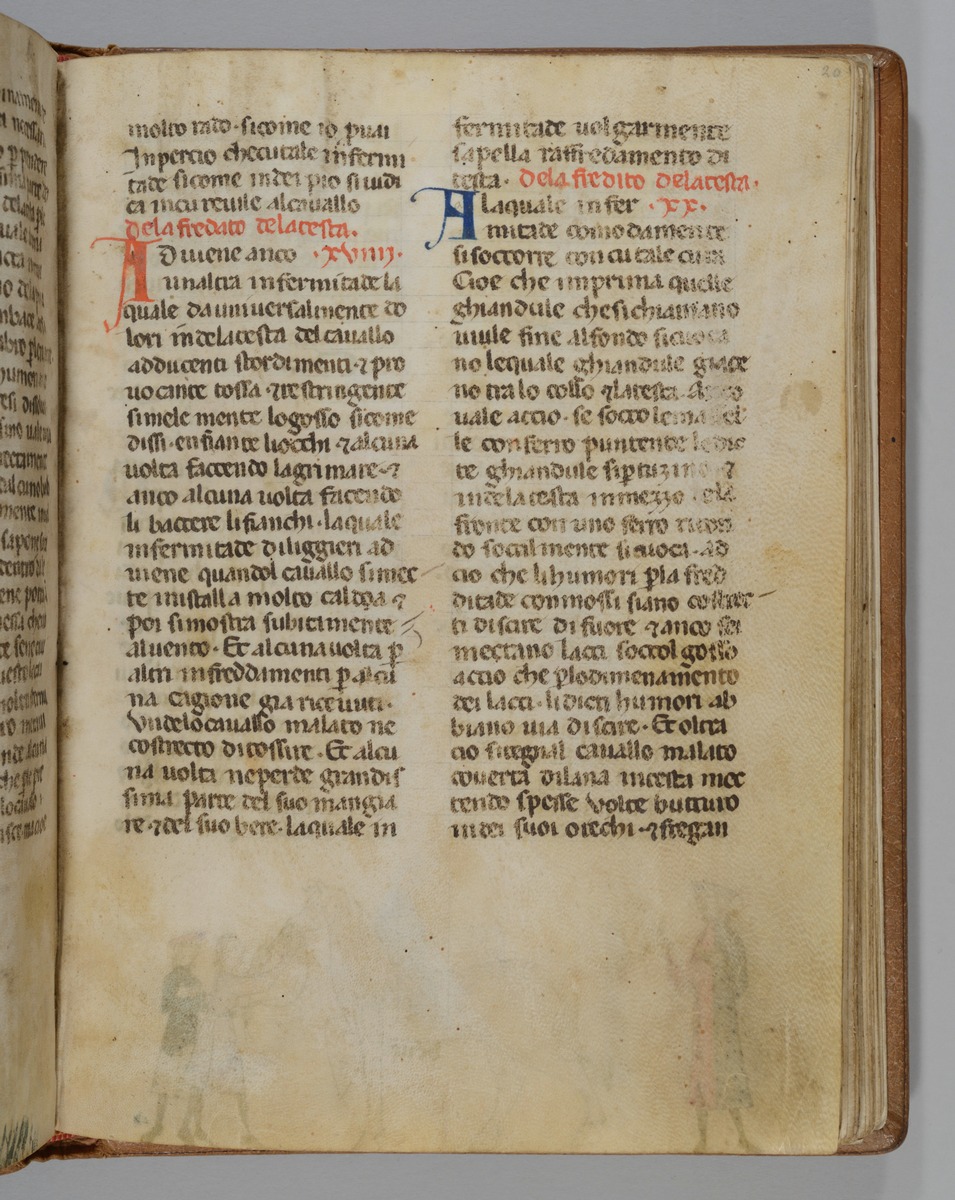 20
molto rado · sicome io puai
Inpercio checutale infermi
tade sicome indei pio si iudi
ca incureuile alcauallo
dela fredato delatesta.
ADuiene anco · xviiij.
unaltra infermitade la
quale da uniuersalmente do
lori indelatesta del cauallo
adducenti stordimenti ⁊ pro
uocante tossa ⁊ restringente
simele mente logosso sicome
dissi · enfiante liocchi · ⁊ alcuna
uolta faccendo lagrimare · ⁊
anco alcuna uolta facendo
li battere li fianchi · laquale
infermitade diliggieri ad
uiene quandol cauallo si mec
te in istalla molto calda ⁊
poi si mostra subitamente
al uento · Et alcuna uolta p̄
altri infreddamenti p̄ alcu
na cagione gia riceuuti ·
Undelo cauallo malato ne
costrecto di tossire · Et alcu
na uolta ne perde grandis
sima parte del suo mangia
re · ⁊ del suo bere · laquale in
fermitade uolgarmente
sapella raffredamento di
testa · dela fredito delatesta ·
Alaquale infer · xx ·
mitade comodamente
si soccorre con cutale cura
Cioe che imprima quelle
ghiandule chesichiamano
uiule fine alfondo
no lequale ghiandule giace
no tra lo collo ⁊ latesta ·
uale accio · se socto
le con ferro puntente le dic
te ghiandule ⁊
indelatesta in mezzo
fronte con uno ferro riton
do sotilmente si ·ad
cio che lihumori p̄ la fred
ditade commossi siano costrec
ti discire di fuore ⁊ anco sei
mectano lacci soctol gosso
accio che p̄ lodimenamento
dei lacci · li dicti humori ab
biano uia discire · Et oltra
cio cauallo malato
couerta dilana intesta mec
tendo spesse uolte butturo
indei suoi orechi · ⁊ fregan